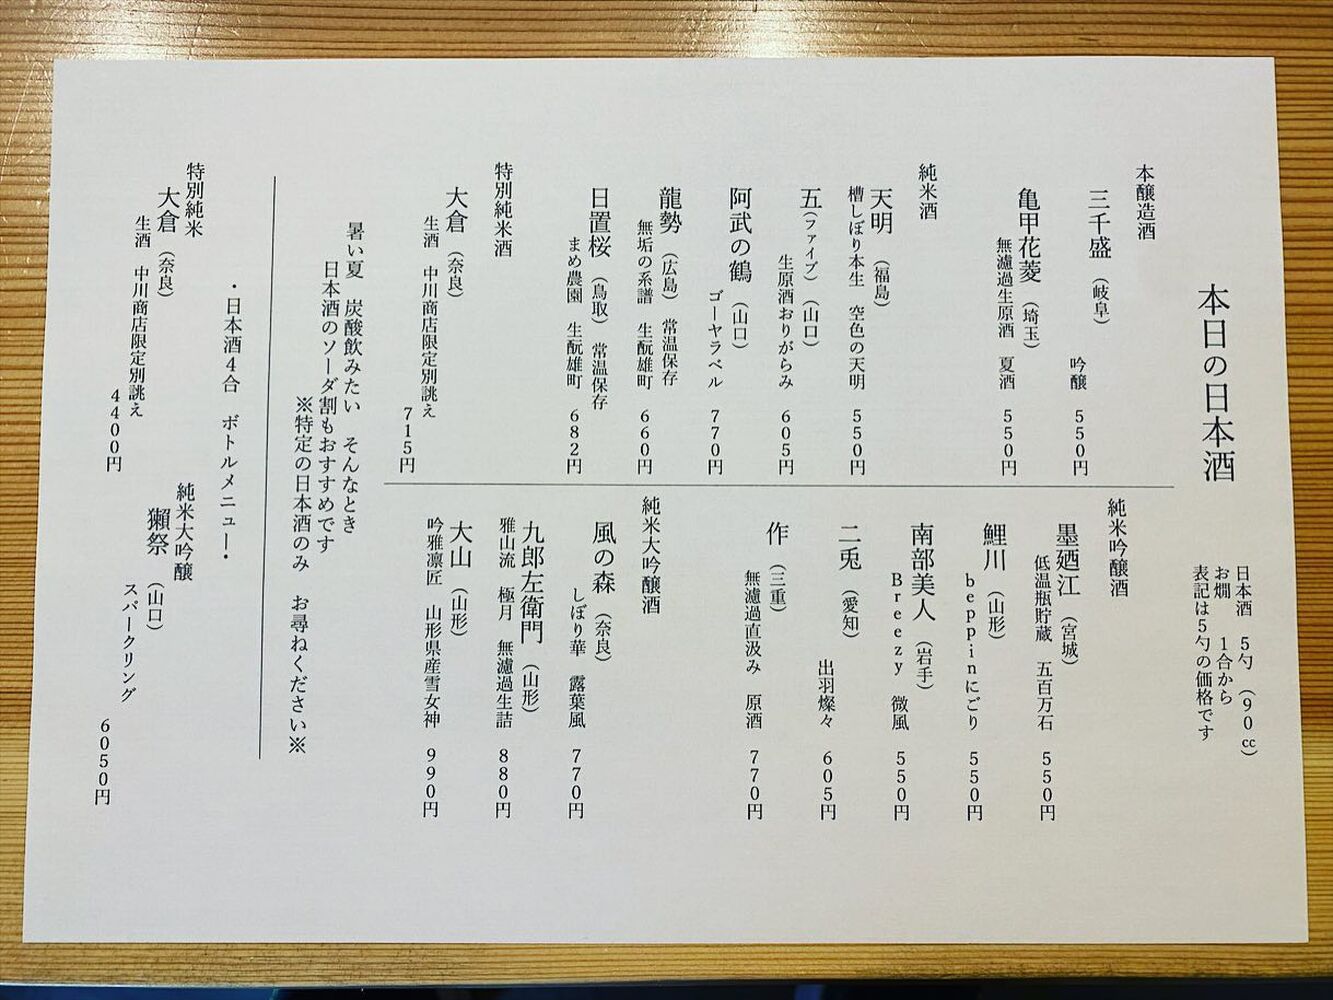 本日の日本酒
日本酒　５勺　（９０㏄）
お燗　１合から
表記は５勺の価格です
本醸造酒
三千盛（岐阜）
吟醸　５５０円
亀甲花菱（埼玉）
無濾過生原酒　夏酒　５５０円
純米酒
天明（福島）
槽しぼり本生　空色の天明　５５０円
五（ファイブ）（山口）
生原酒おりがらみ　６０５円
阿武の鶴（山口）
ゴーヤラベル　７７０円
龍勢（広島）常温保存
無垢の系譜　生酛雄町　６６０円
日置桜（鳥取）常温保存
まめ農園　生酛雄町　６８２円
特別純米酒
大倉（奈良）
生酒　中川商店限定別誂え
７１５円
純米吟醸酒
墨廼江（宮城）
低温瓶貯蔵　五百万石　５５０円
鯉川（山形）
ｂｅｐｐｉｎにごり　５５０円
南部美人（岩手）
Ｂｒｅｅｚｙ　微風　５５０円
二兎（愛知）
出羽燦々　６０５円
作（三重）
無濾過直汲み　原酒　７７０円
純米大吟醸酒
風の森（奈良）
しぼり華　露葉風　７７０円
九郎左衛門（山形）
雅山流　極月　無濾過生詰　８８０円
大山（山形）
吟雅凛匠　山形県産雪女神　９９０円
暑い夏　炭酸飲みたい　そんなとき
日本酒のソーダ割もおすすめです
※特定の日本酒のみ　お尋ねください※
・日本酒４合　ボトルメニュー・
特別純米
大倉（奈良）
生酒　中川商店限定別誂え
４４００円
純米大吟醸
獺祭（山口）
スパークリング
６０５０円